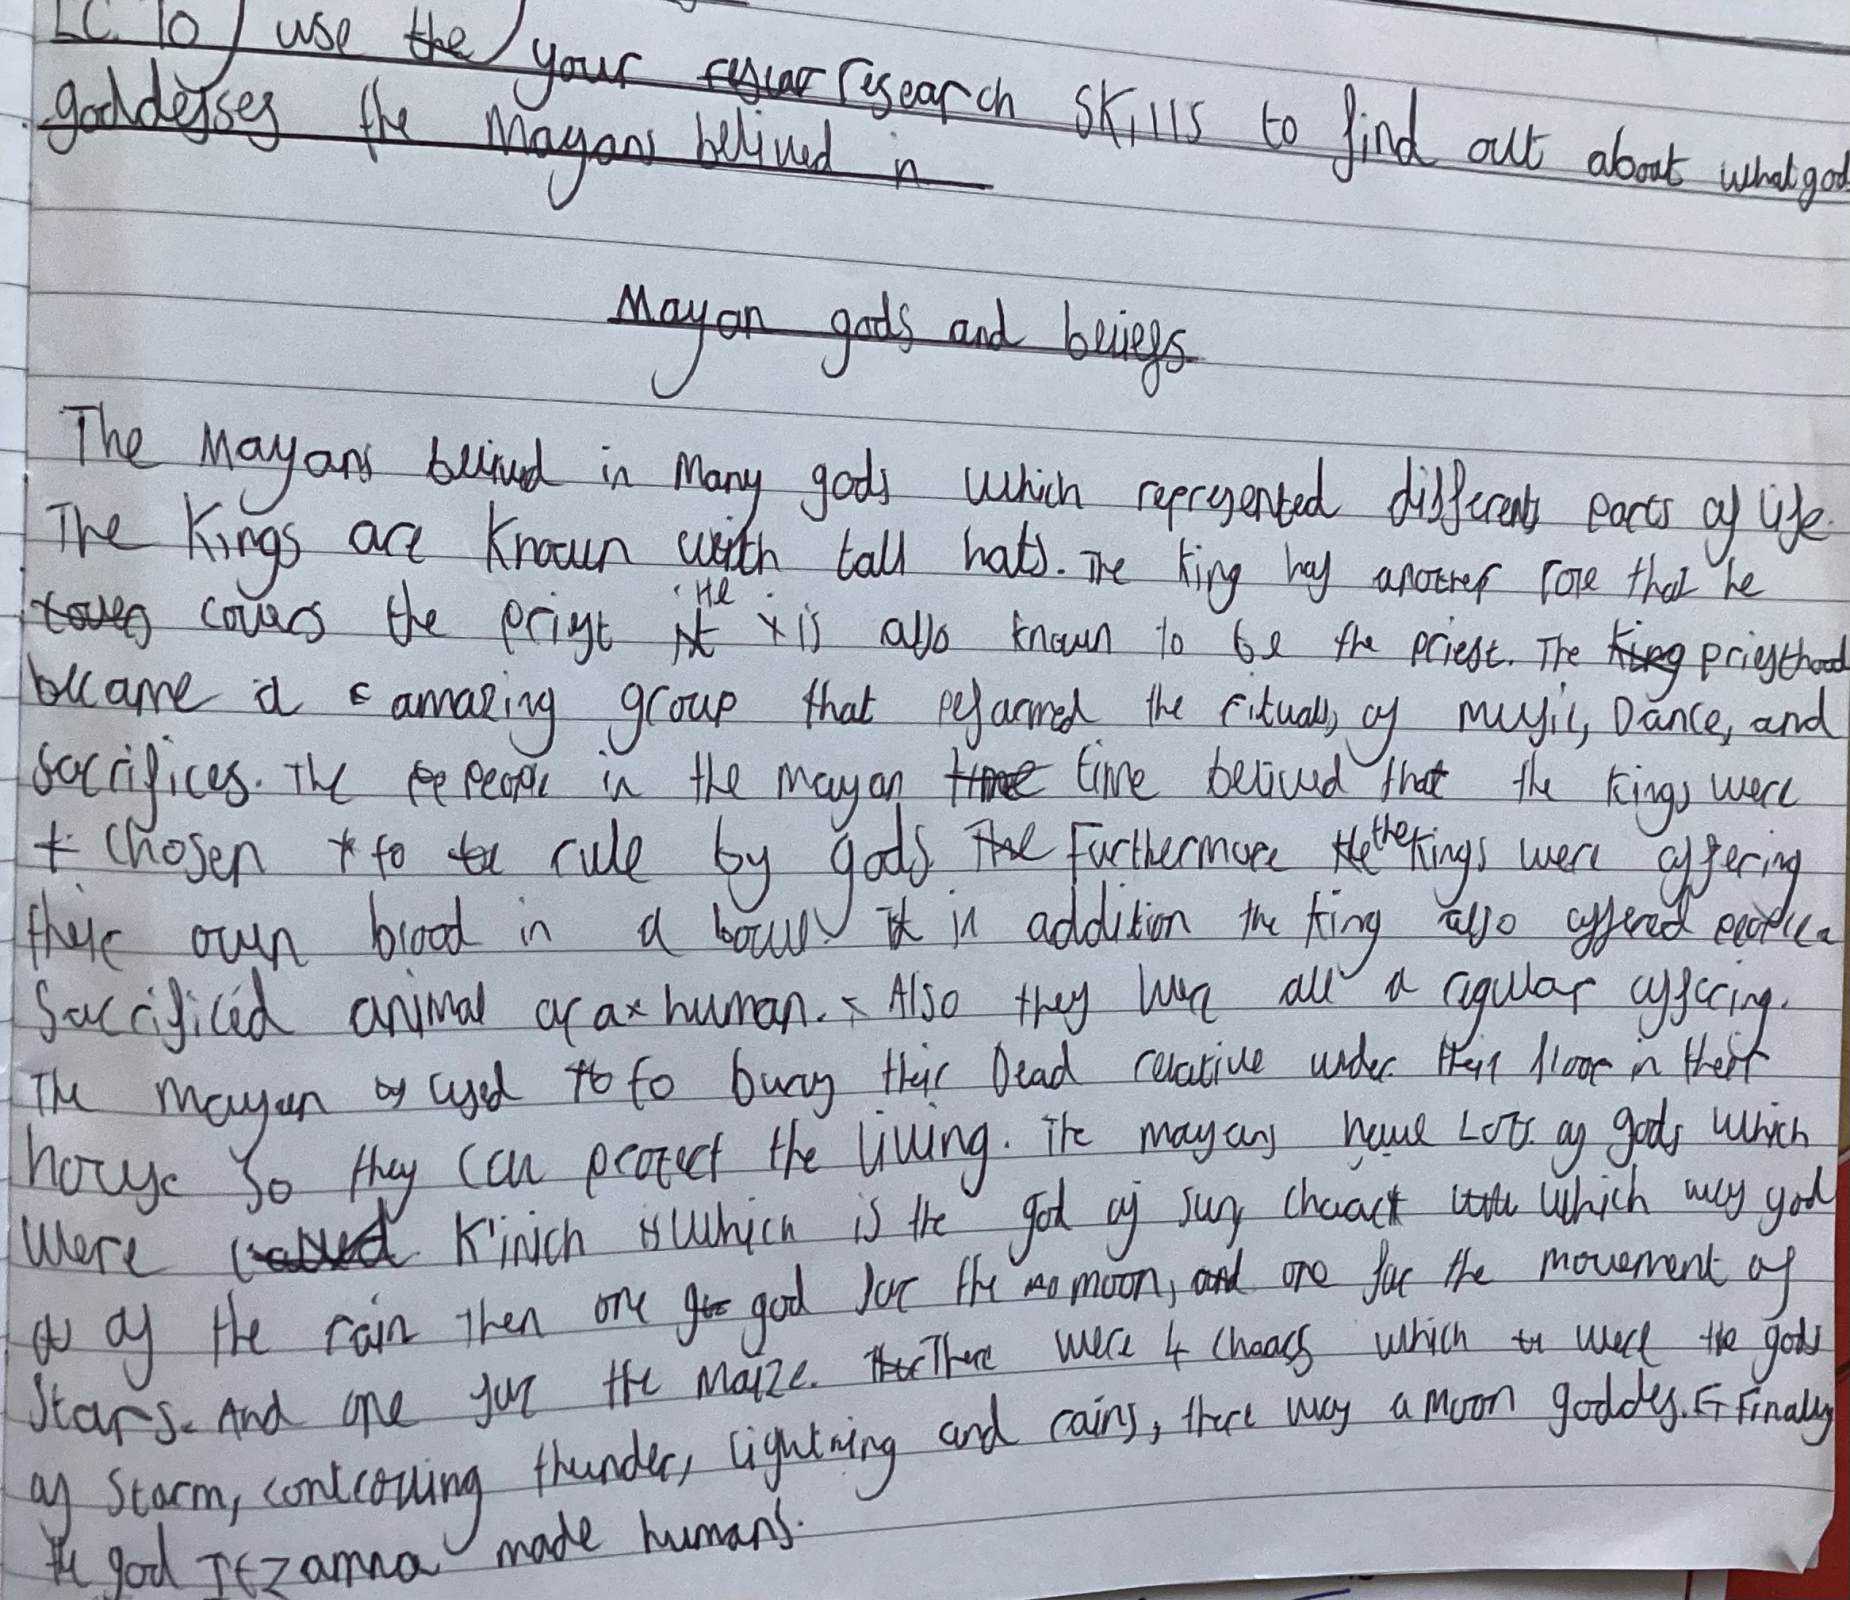 LC To use the your resear research skills to find out about what god
goddesses the Mayans belived in
Mayan gods and beliefs
The Mayans belived in Many gods which represented different parts of life.
The Kings are Known with tall hats. The King has another role that he
covers covers the priest it He is also known to be the priest. The King priesthood
became a amazing group that peformed the rituals, of music, Dance, and
sacrifices. The pe people in the mayan time time belived that the kings were
chosen to be rule by gods The Furthermore the the kings were offering
their own blood in a bowl it in addition the king also offered people a
Sacrificied animal or a human. Also they were all a regular offering.
The mayan used to to bury their Dead relative under their floor in their
house So they can protect the living. The mayans have Lots of gods which
were called K'inich is which is the god of sun, chaack which was god
of the rain then one god for the mo moon, and one for the movement of
Stars. And one for the Maize. There were 4 chaacs which were the gods
of storm, controlling thunder, lightning and rains, there was a Moon goddes. F Finally
the god Itzamna made humans.